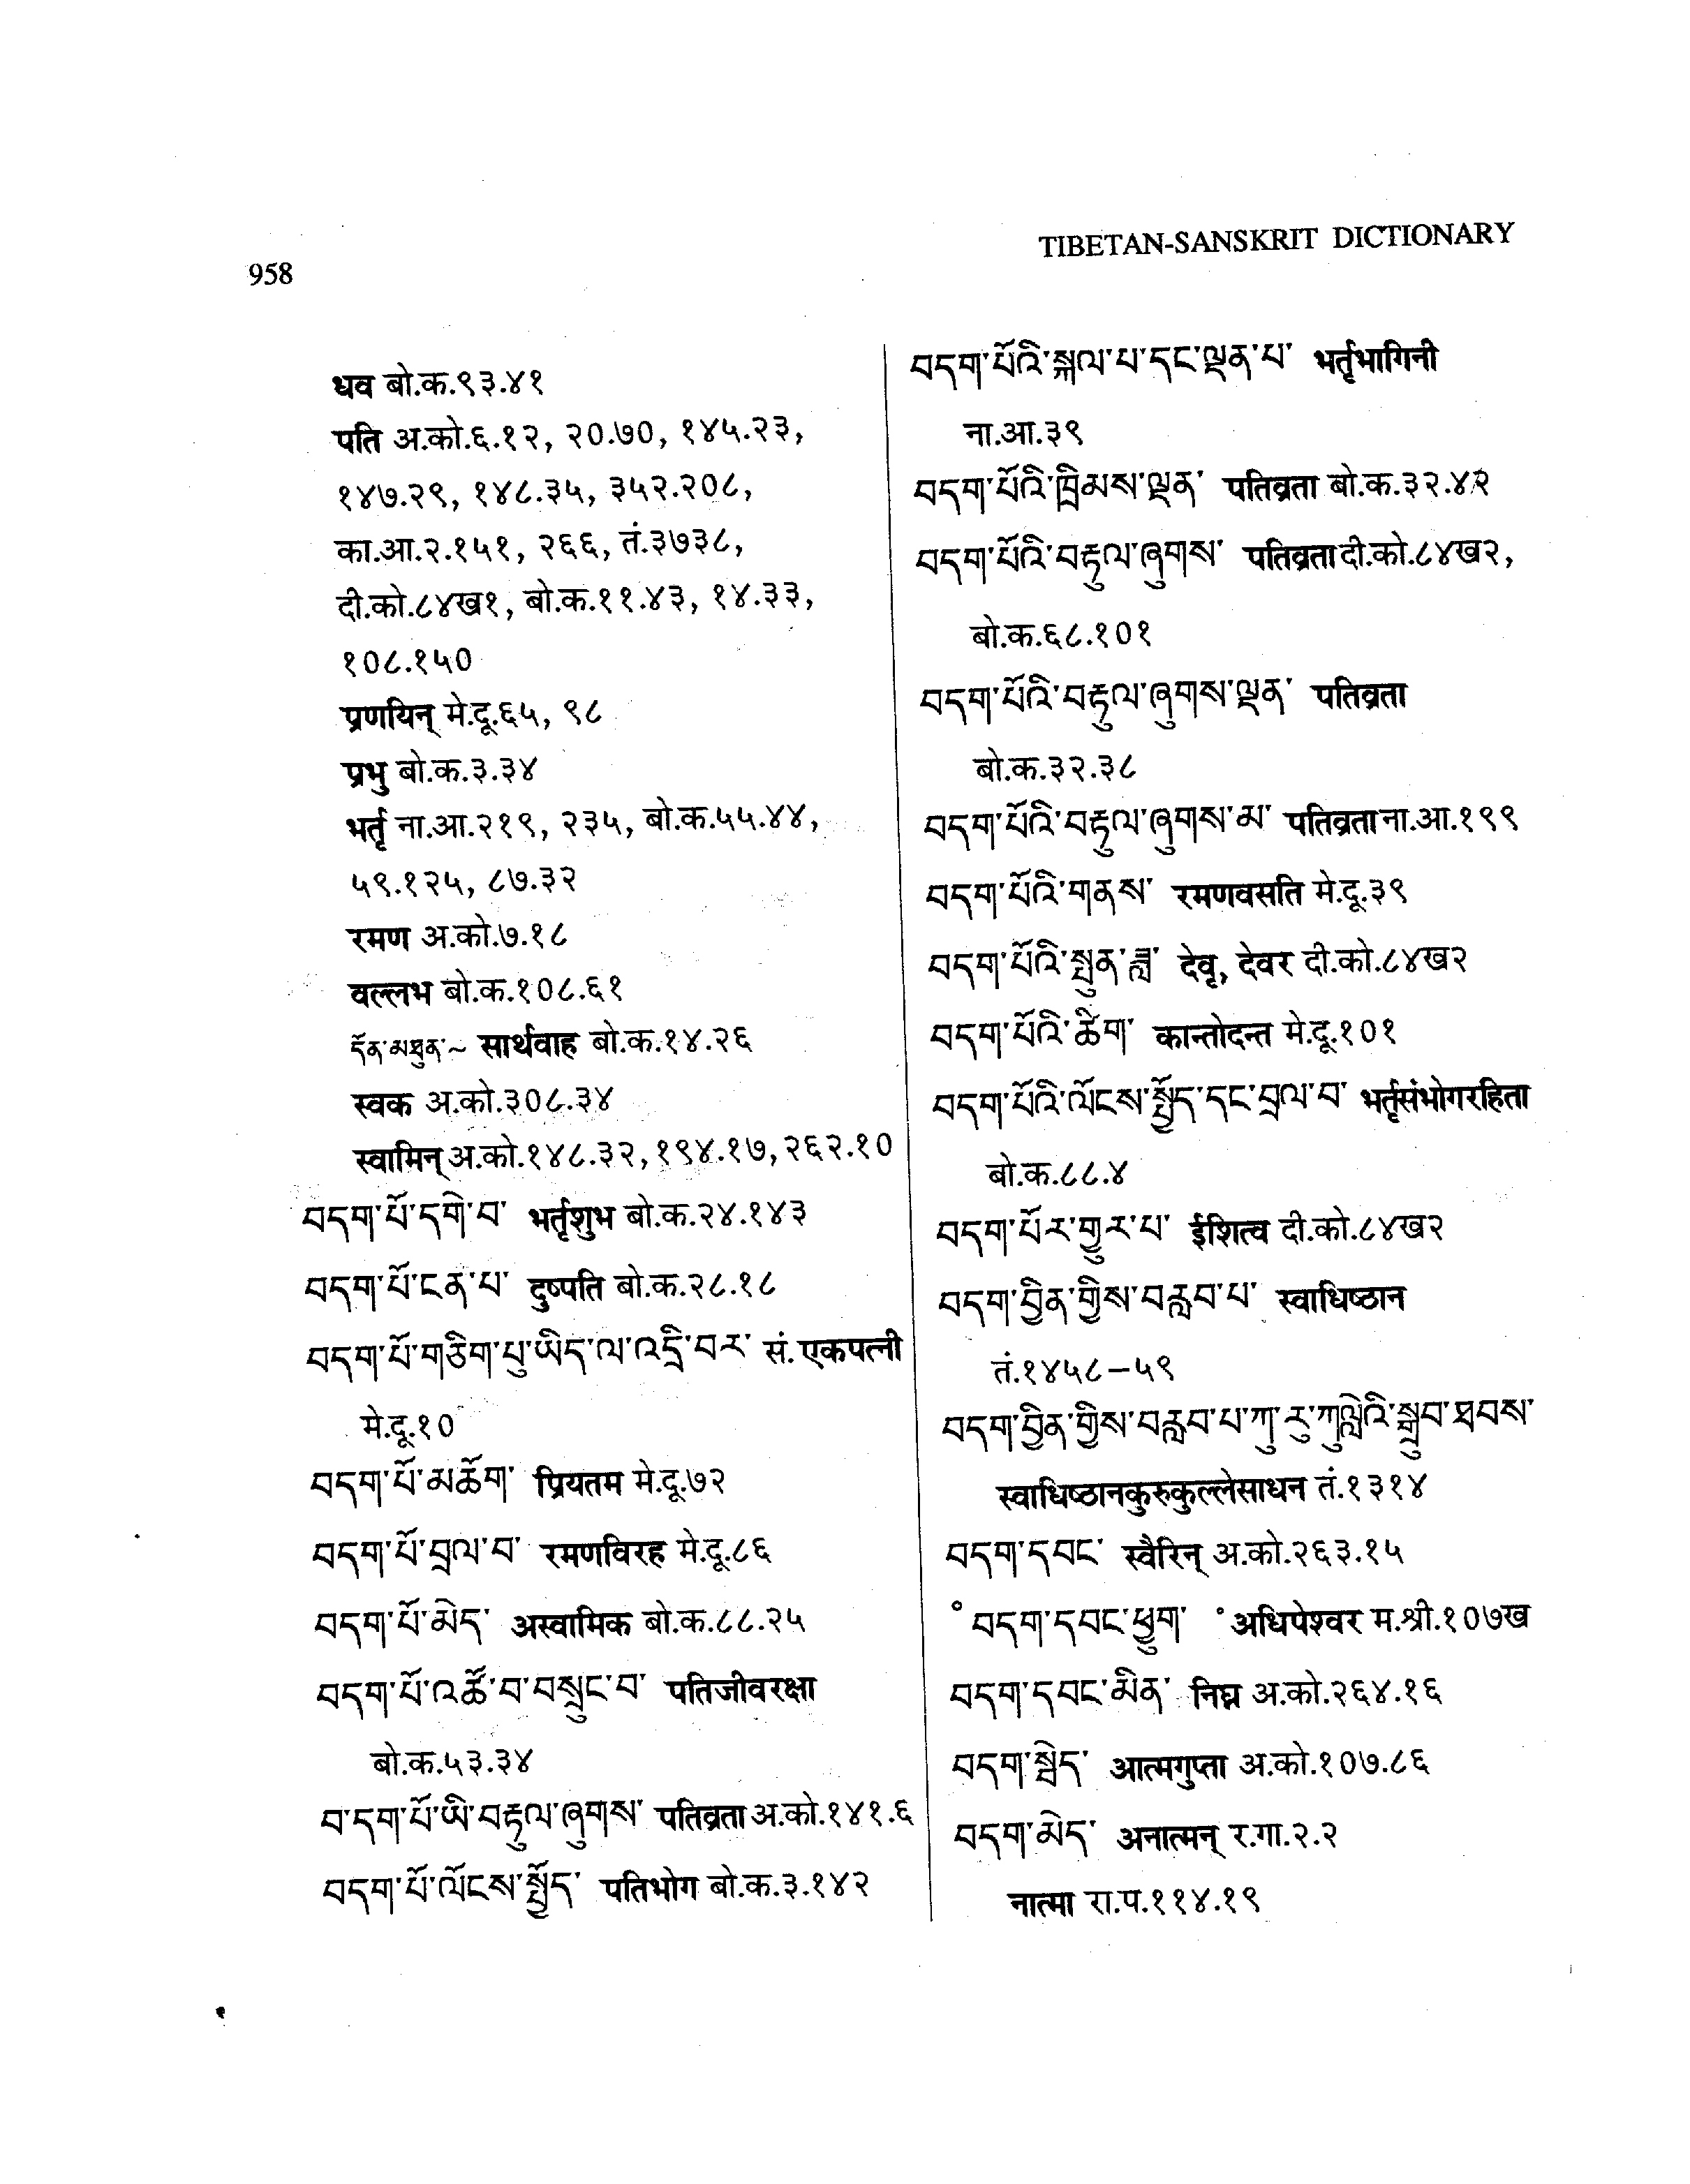 958
TIBETAN-SANSKRIT DICTIONARY
धव बो.क.९३.४१
पति अ.को.६.१२, २०.७०, १४५.२३,
१४७.२९, १४८.३५, ३५२.२०८,
का.आ.२.१५१, २६६, तं.३७३८,
दी.को.८४ख१, बो.क.११.४३, १४.३३,
१०८.१५०
प्रणयिन् मे.दू.६५, ९८
प्रभु बो.क.३.३४
भर्तृ ना.आ.२१९, २३५, बो.क.५५.४४,
५९.१२५, ८७.३२
रमण अ.को.७.१८
वल्लभ बो.क.१०८.६१
དོན་མཐུན་~ सार्थवाह बो.क.१४.२६
स्वक अ.को.३०८.३४
स्वामिन् अ.को.१४८.३२, १९४.१७, २६२.१०
བདག་པོ་དགེ་བ་ भर्तृशुभ बो.क.२४.१४३
བདག་པོ་ངན་པ་ दुष्पति बो.क.२८.१८
བདག་པོ་གཅིག་པུ་ཡིད་ལ་འདྲི་བར་ सं. एकपत्नी
मे.दू.१०
བདག་པོ་མཆོག་ प्रियतम मे.दू.७२
བདག་པོ་བྲལ་བ་ रमणविरह मे.दू.८६
བདག་པོ་མེད་ अस्वामिक बो.क.८८.२५
བདག་པོ་འཚོ་བ་བསྲུང་བ་ पतिजीवरक्षा
बो.क.५३.३४
བ་དག་པོ་ཡི་བརྟུལ་ཞུགས་ पतिव्रता अ.को.१४१.६
བདག་པོ་ལོངས་སྤྱོད་ पतिभोग बो.क.३.१४२
བདག་པོའི་སྐལ་པ་དང་ལྡན་པ་ भर्तृभागिनी
ना.आ.३९
བདག་པོའི་ཁྲིམས་ལྡན་ पतिव्रता बो.क.३२.४२
བདག་པོའི་བརྟུལ་ཞུགས་ पतिव्रता दी.को.८४ख२,
बो.क.६८.१०१
བདག་པོའི་བརྟུལ་ཞུགས་ལྡན་ पतिव्रता
बो.क.३२.३८
བདག་པོའི་བརྟུལ་ཞུགས་མ་ पतिव्रता ना.आ.१९९
བདག་པོའི་གནས་ रमणवसति मे.दू.३९
བདག་པོའི་སྤུན་ཟླ་ देवृ, देवर दी.को.८४ख२
བདག་པོའི་ཚིག་ कान्तोदन्त मे.दू.१०१
བདག་པོའི་ལོངས་སྤྱོད་དང་བྲལ་བ་ भर्तृसंभोगरहिता
बो.क.८८.४
བདག་པོར་གྱུར་པ་ ईशित्व दी.को.८४ख२
བདག་བྱིན་གྱིས་བརླབ་པ་ स्वाधिष्ठान
तं.१४५८–५९
བདག་བྱིན་གྱིས་བརླབ་པ་ཀུ་རུ་ཀུལླེའི་སྒྲུབ་ཐབས་
स्वाधिष्ठानकुरुकुल्लेसाधन तं.१३१४
བདག་དབང་ स्वैरिन् अ.को.२६३.१५
° བདག་དབང་ཕྱུག་ ° अधिपेश्वर म.श्री.१०७ख
བདག་དབང་མིན་ निघ्न अ.को.२६४.१६
བདག་སྦེད་ आत्मगुप्ता अ.को.१०७.८६
བདག་མེད་ अनात्मन् र.गा.२.२
नात्मा रा.प.११४.१९